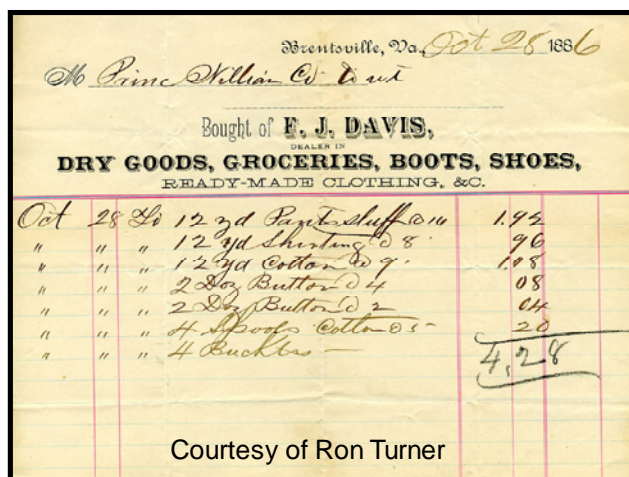 Brentsville, Va., Oct 28 1886
M Princ William Co
Bought of F. J. DAVIS,
DEALER IN
DRY GOODS, GROCERIES, BOOTS, SHOES,
READY-MADE CLOTHING, &C.
Oct 28 To 12 yd Pant stuff @ 16 1.92
" " " 12 yd Shirting @ 8 96
" " " 12 yd Cotton @ 9 1.08
" " " 2 Doz Button @ 4 08
" " " 2 Doz Button @ 2 04
" " " 4 Spools Cotton @ 5 20
" " " 4 Buckles —
4,28
Courtesy of Ron Turner